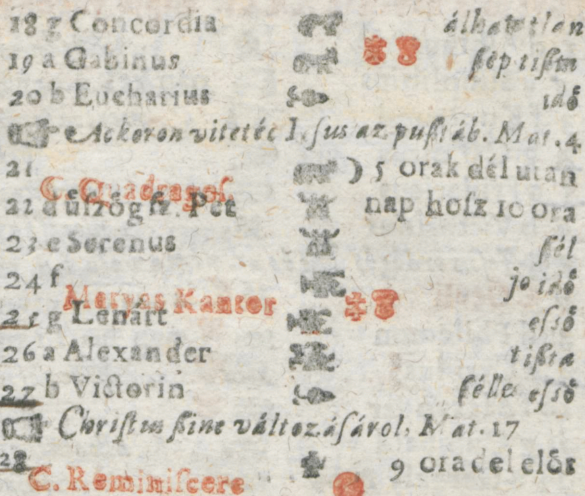 18 g Concordia álhatatlan
19 a Gabinus ſép tißta
20 b Eucharius idő
Ackoron viteték I. ſus az pußtáb. Mat. 4
21 C. Quadrageſ. ) 5 orak dél utan
22 d uizög ſz. Pet nap hoſz 10 ora
23 e Serenus fél
24 f Matyas jo idő
25 g Lenart Kantor eſső
26 a Alexander tißta
27 b Victorin félle eſső
Chriſtus ßine változáſárol, Mat. 17
28 C. Reminiſcere 9 ora del elős